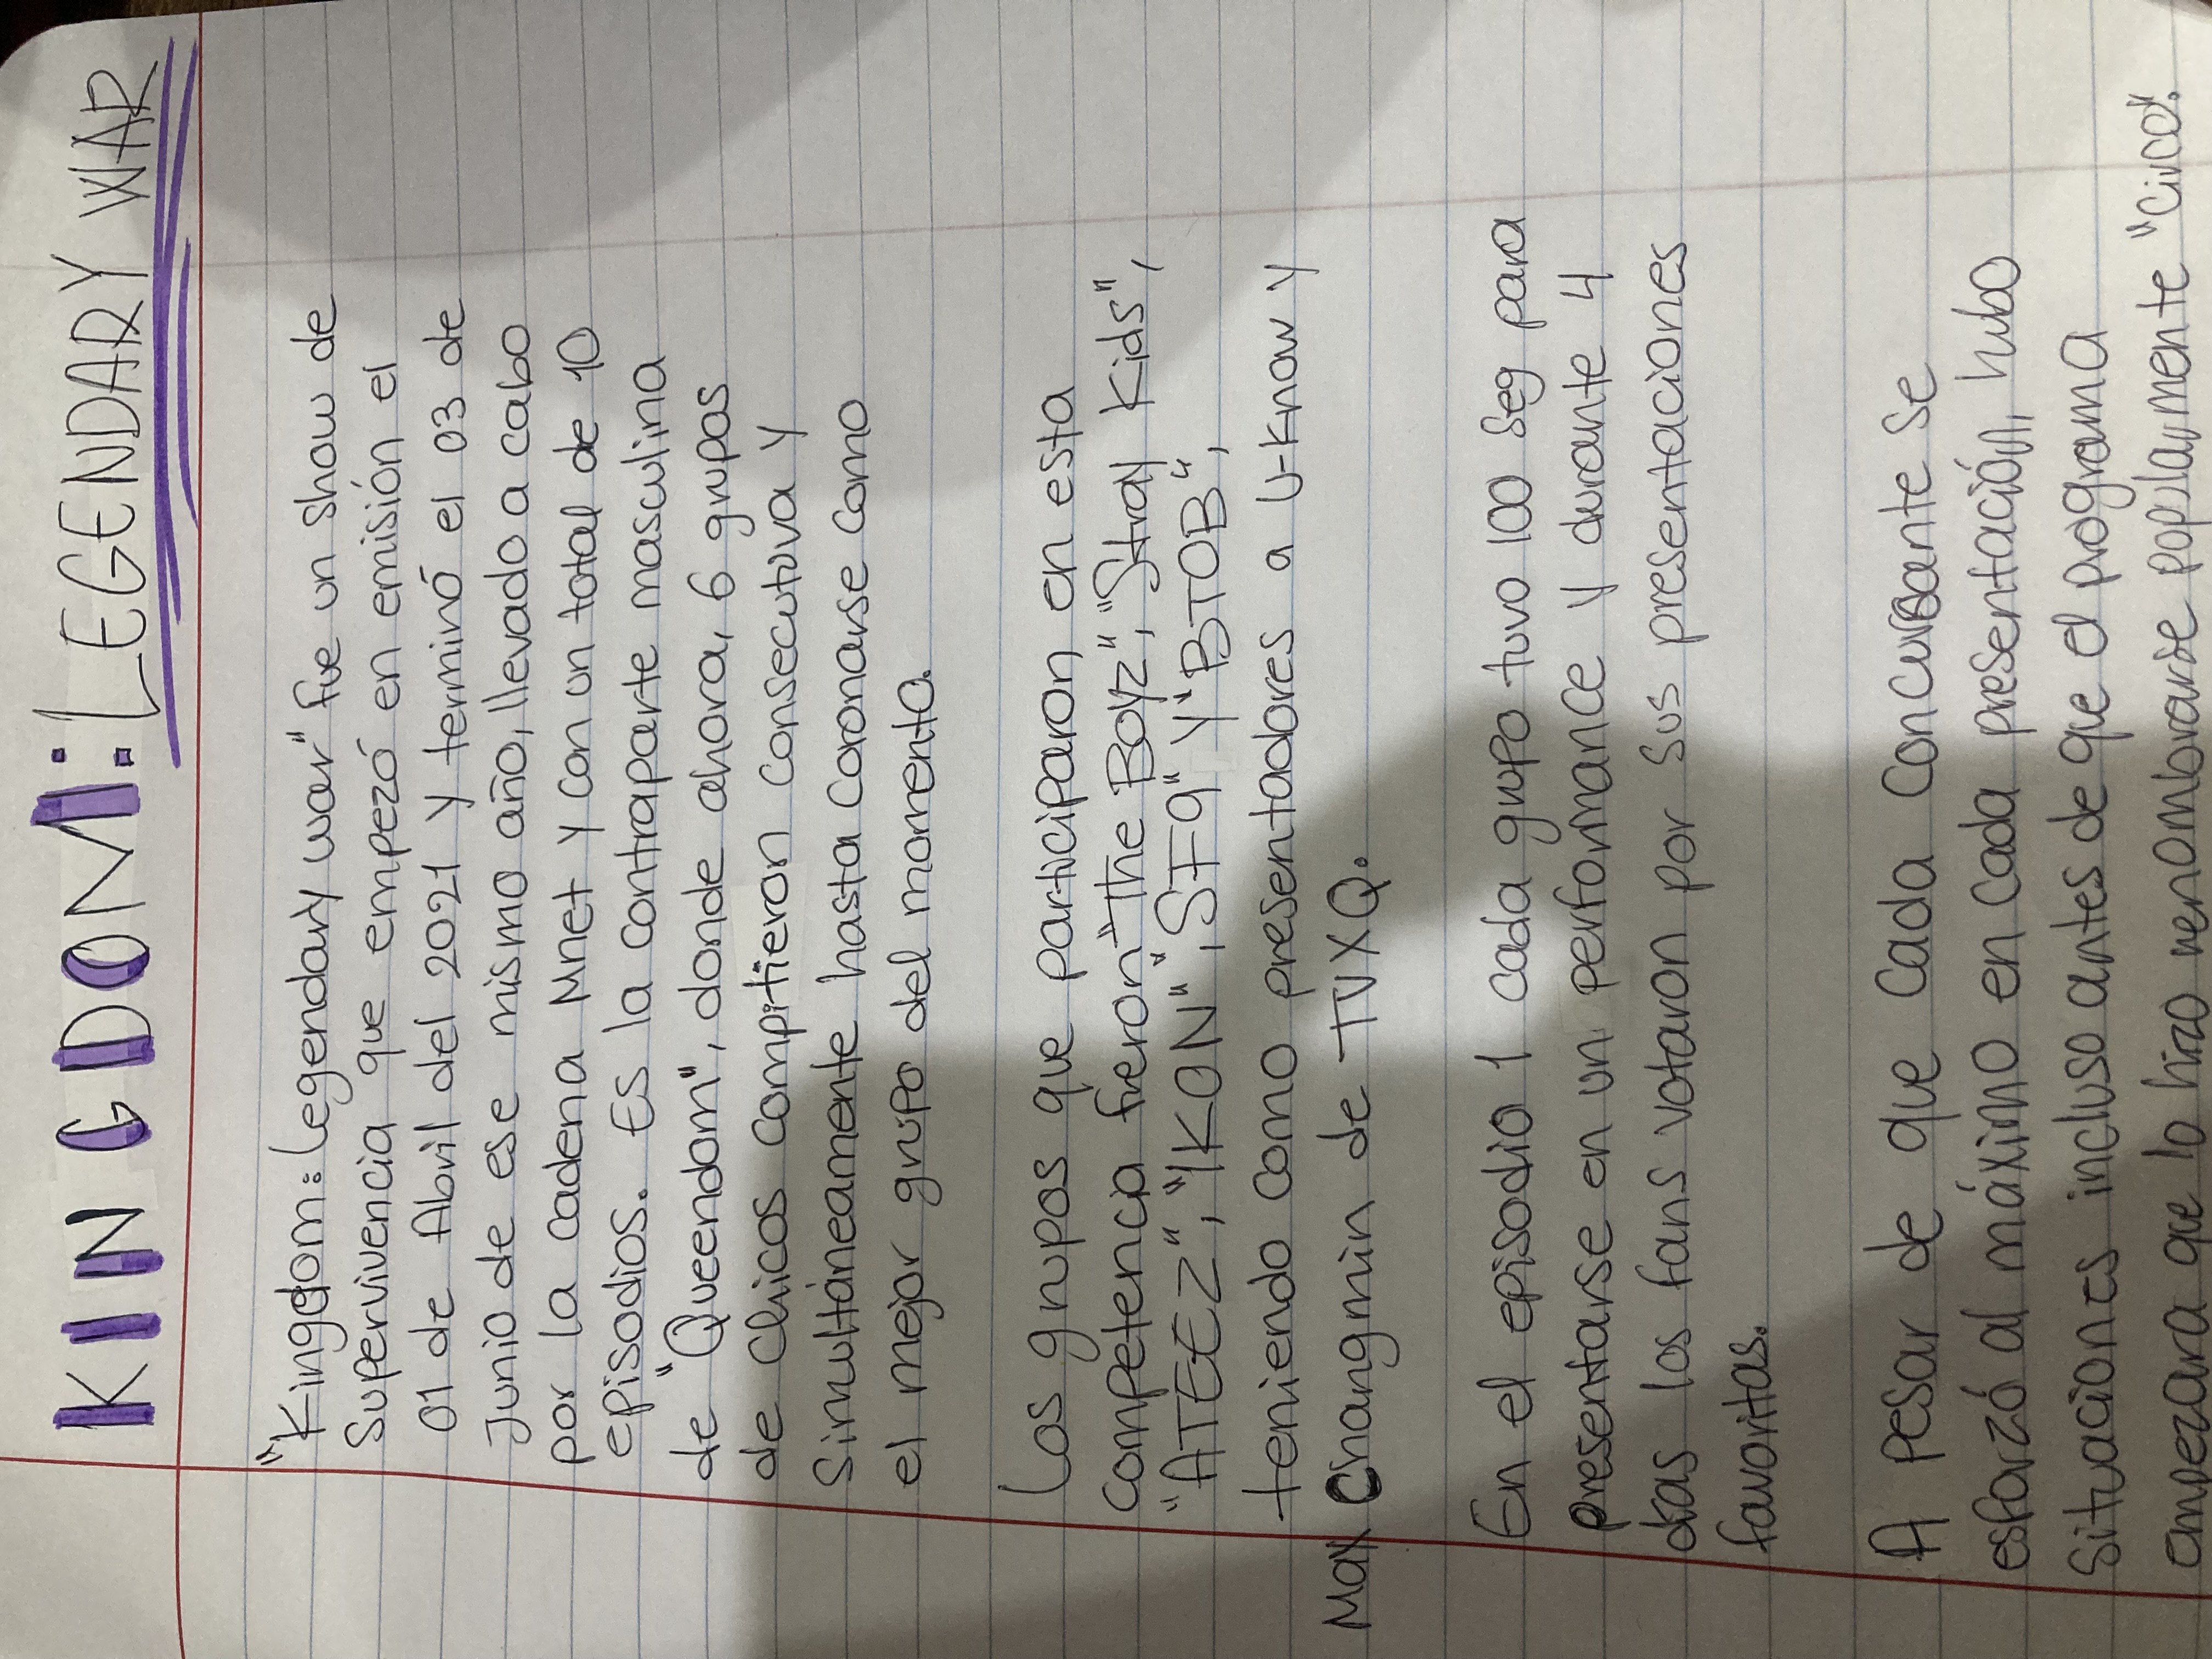 KINGDOM: LEGENDARY WAR
"Kingdom: Legendary war" fue un show de
Supervivencia que empezó en emisión el
01 de Abril del 2021 y terminó el 03 de
Junio de ese mismo año, llevado a cabo
por la cadena Mnet y con un total de 10
episodios. Es la contraparte masculina
de "Queendom", donde ahora, 6 grupos
de chicos compitieron consecutiva y
Simultáneamente hasta coronarse como
el mejor grupo del momento.
Los grupos que participaron en esta
competencia fueron "The Boyz", "Stray Kids",
"ATEEZ", "IKON", "SF9" y "BTOB",
teniendo como presentadores a U-know y
Max Changmin de TVXQ.
En el episodio 1 cada grupo tuvo 100 seg para
presentarse en un perfomance y durante 4
días los fans votaron por sus presentaciones
favoritas.
A pesar de que cada concursante se
esforzó al máximo en cada presentación, hubo
Situaciones incluso antes de que el programa
empezara que lo hizo renombrarse popularmente "Circo".